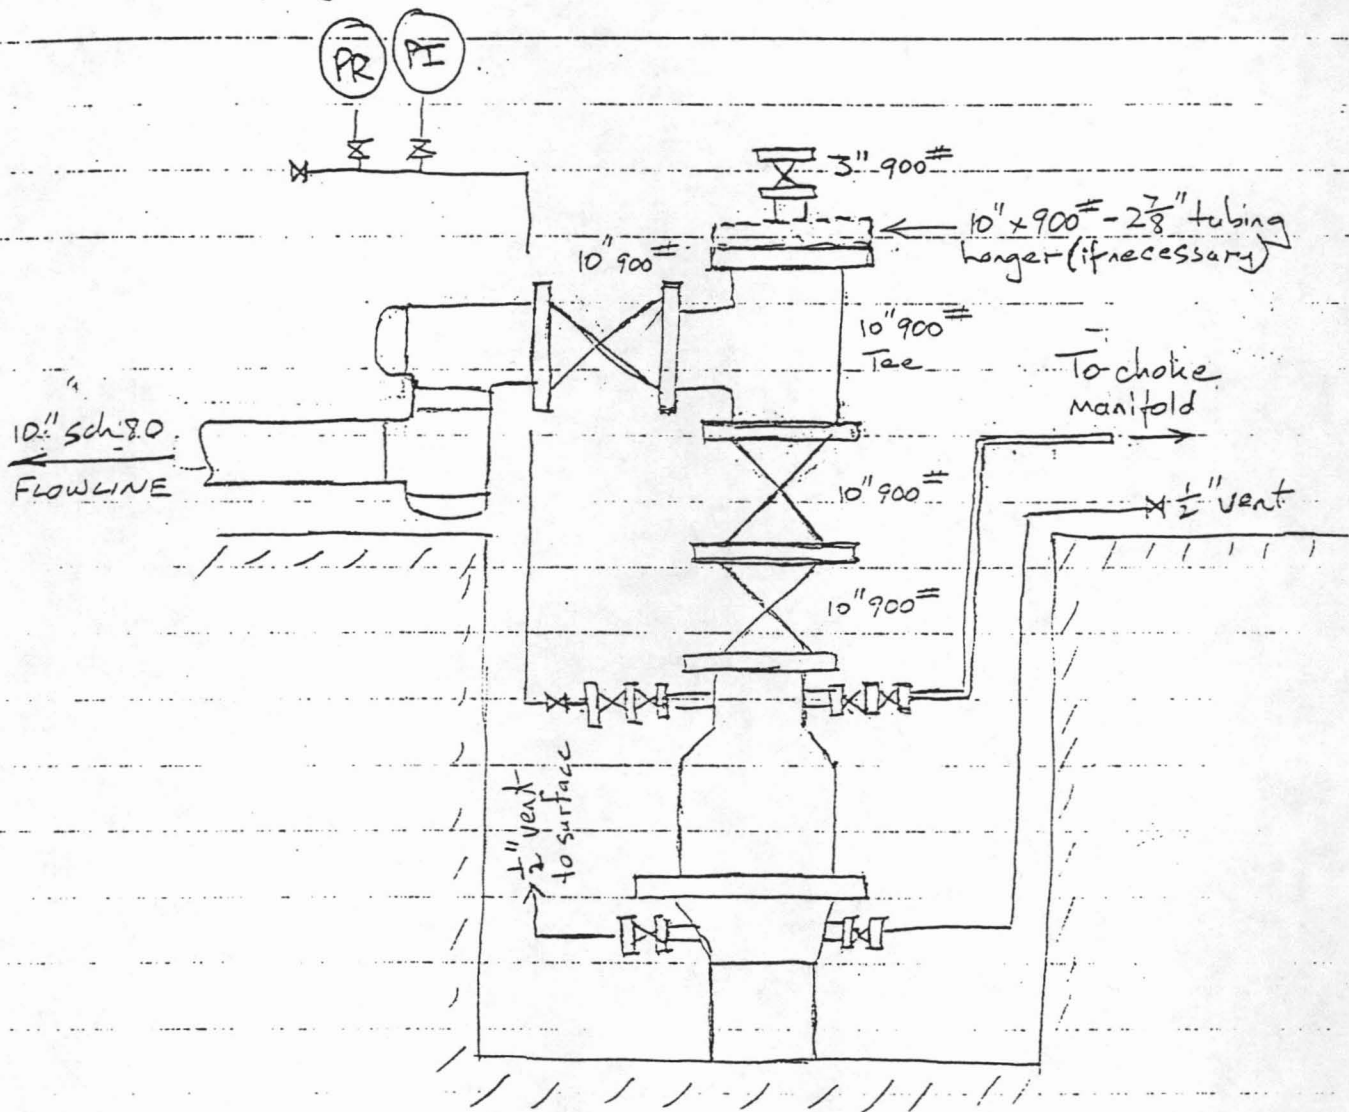 PR
PI
3" 900#
10" x 900# - 2 7/8" tubing
hanger (if necessary)
10" 900#
10" 900#
Tee
To choke
manifold
10" sch 80
FLOWLINE
10" 900#
1/2" vent
10" 900#
1/2" vent
to surface